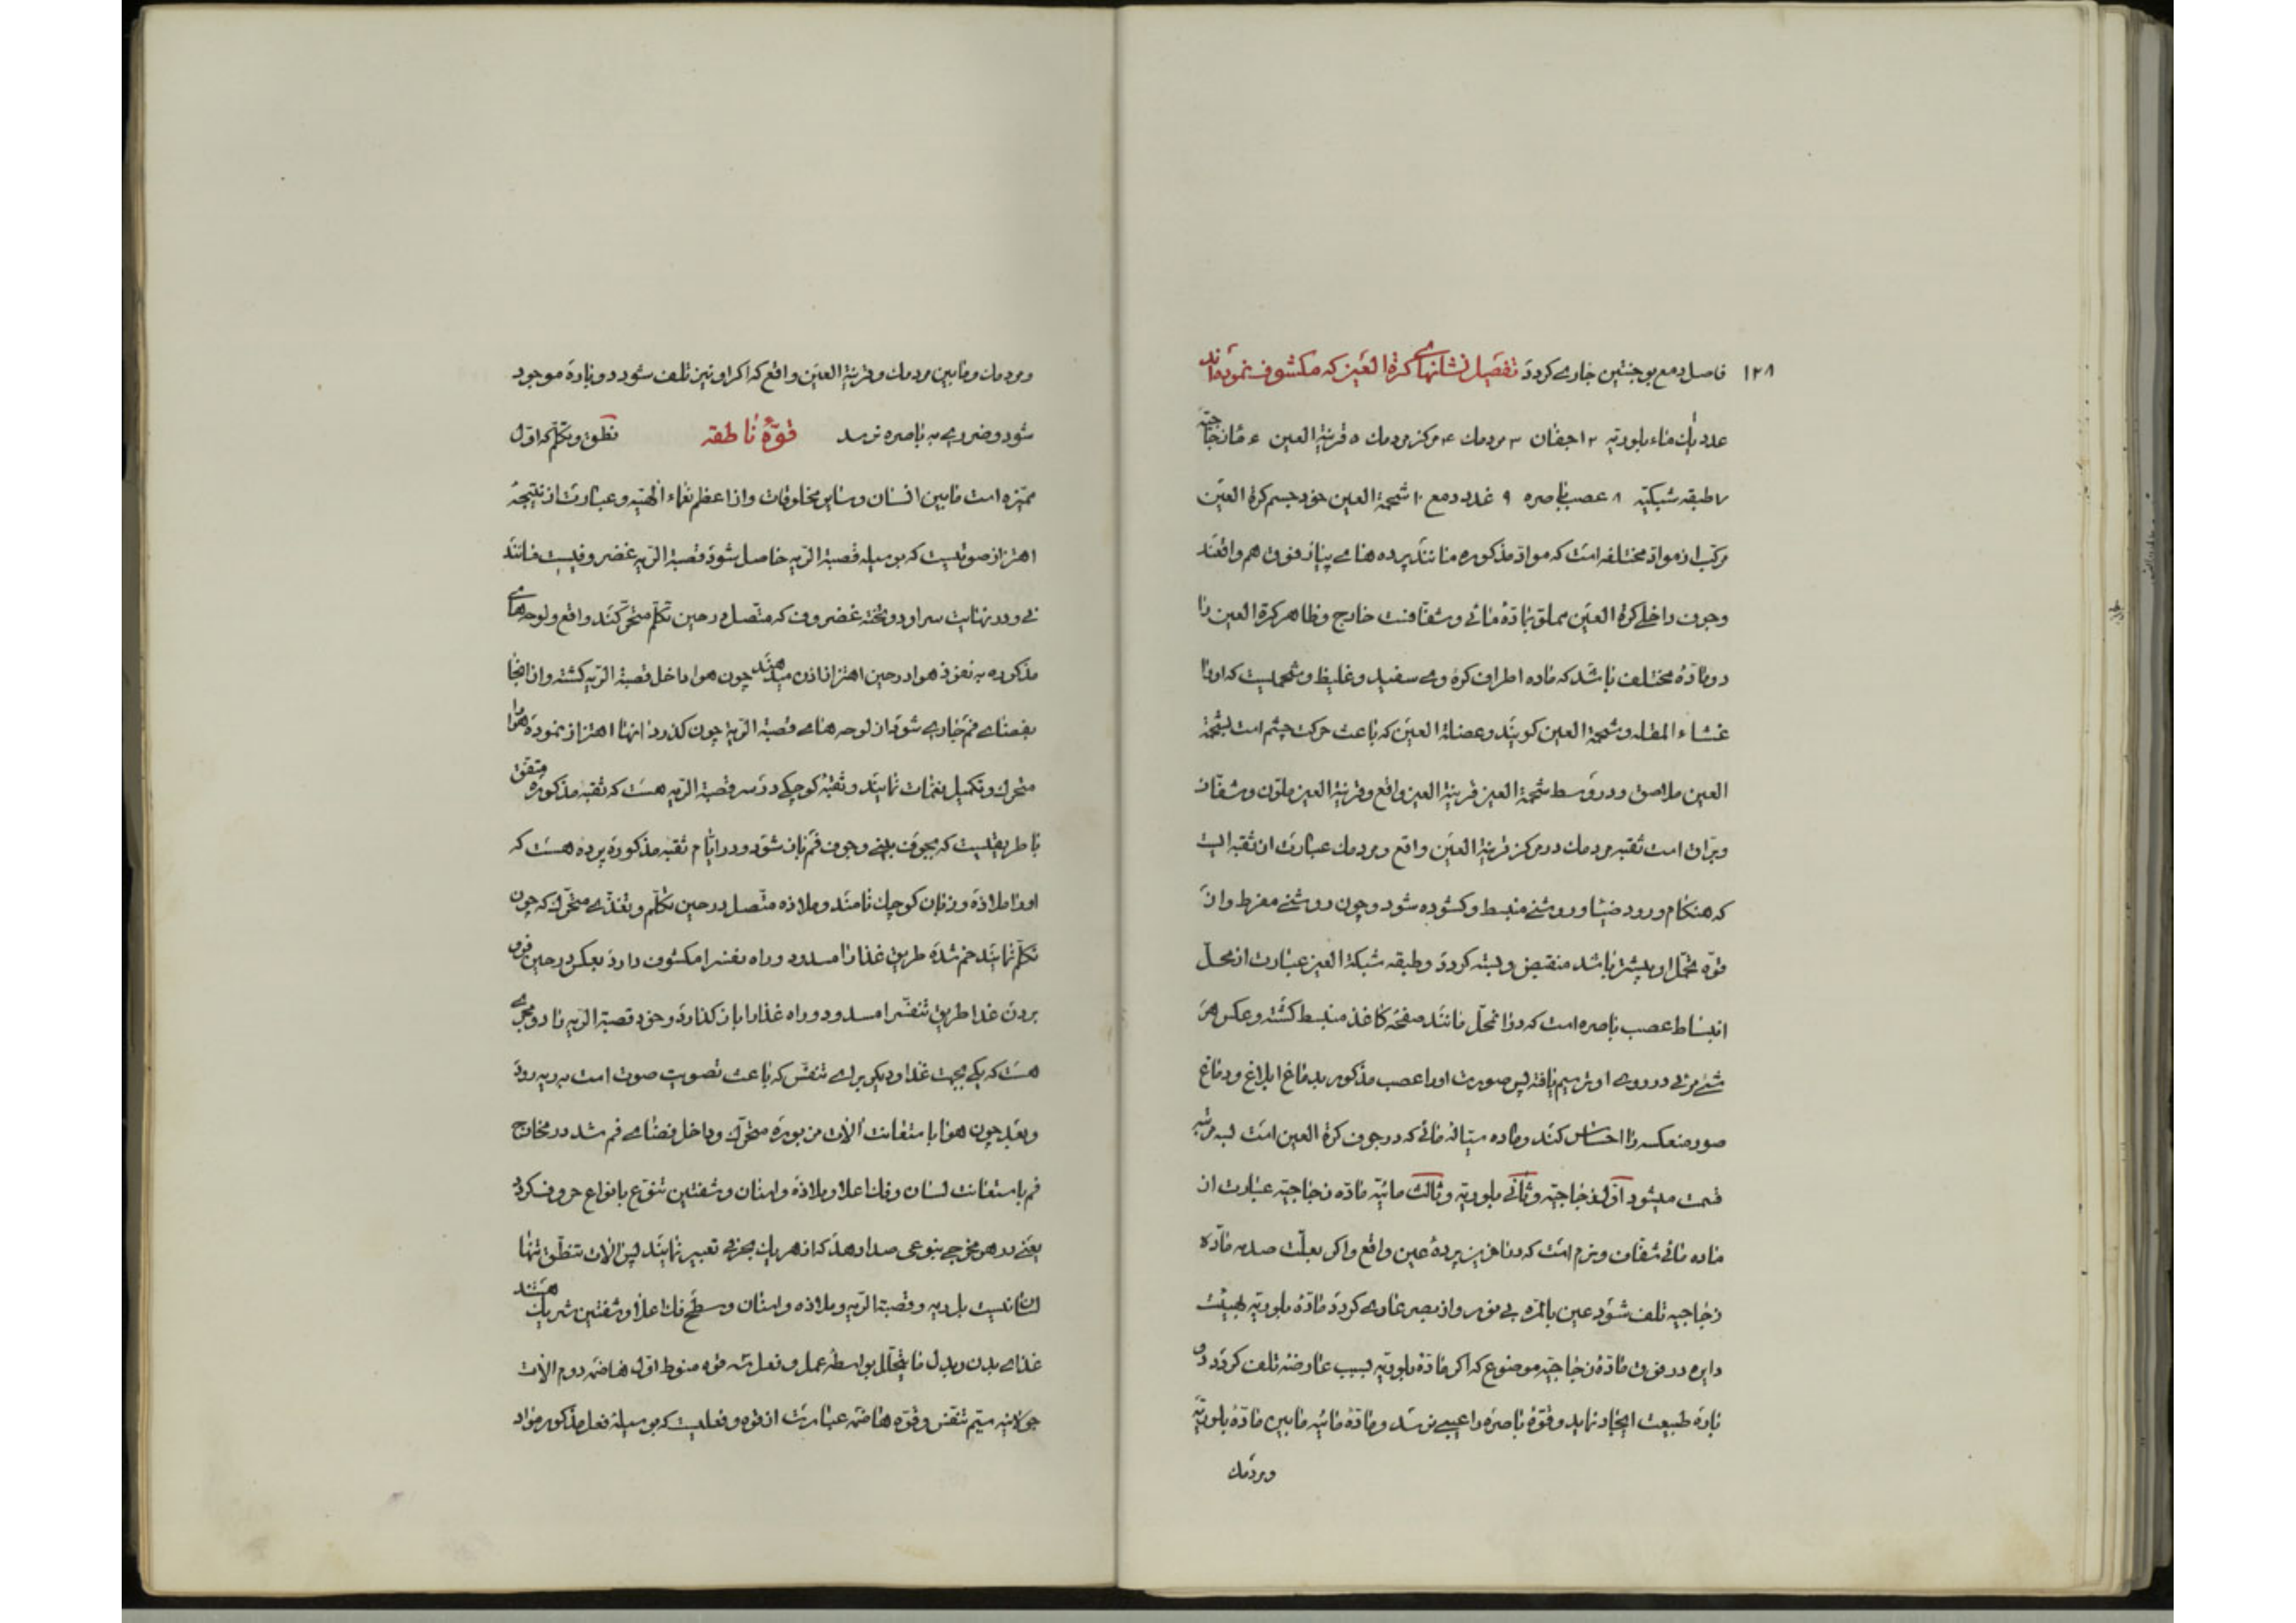 ۱۲۸
فاصل دمع بوجنتین جاری کردد تفصیل نشانهای کرة العین که مکشوف نموده‌اند
عدد یك ماء بلوریّه ۲ اجفان ۳ مردمك ۴ مرکز مردمك ۵ قرنیة العین ۶ مانٔ زجاجیّه
۷ طبقه شبکیّه ۸ عصب باصره ۹ غدد دمع ۱۰ شحمة العین خود جسم کرة العین
مرکب از موادّ مختلفه است که موادّ مذکوره مانند پرده های پیاز فوق هم واقعند
وجوف داخلی کرة العین مملوّ بمادّهٔ مائی و شفّافست خارج و ظاهر کرة العین را
دو مادّهٔ مختلف باشد که ماده اطراف کرهٔ وی سفید و غلیظ و شحمیست که اورا
غشاء المقله و شحمة العین کویند و عضلة العین که باعث حرکت چشم است بشحمة
العین ملاصق و در وسط شحمة العین قرنیة العین واقع و قرنیة العین ملوّن و شفّاف
وبرّاق است ثقبه مردمك در مرکز قرنیة العین واقع و مردمك عبارت از ثقبه ایست
که هنکام ورود ضیا و روشنی منبسط و کشوده شود و چون روشنی مفرط و از
قوّه تحمّل او بیشتر باشد منقبض و بسته کردد و طبقه شبکة العین عبارت از محلّ
انبساط عصب باصره است که در انمحلّ مانند صفحهٔ کاغذ منبسط کشته و عکس هر
شئ مرئی در روی او ترسیم یافته پس صورت اورا عصب مذکور بدماغ ابلاغ و دماغ
صور منعکسه را احساس کند و ماده سیّالهٔ مائی که در جوف کرة العین است بسه مرتبه
قسمت میشود اوّل زجاجیّه و ثانی بلوریّه و ثالث مائیّه مادّه زجاجیّه عبارت از
ماده مائی شفّاف و نرم است که در پرده عین واقع و اکر بعلّت صدمه مادّه
زجاجیه تلف شود عین بالمرّه بی نور و از بصر عاری کردد مادّهٔ بلوریّه بهیئت
دایره در فوق مادّهٔ زجاجیّه موضوع که اکر مادّهٔ بلوریّه بسبب عارضه تلف کردد دو
باره طبیعت ایجاد نماید و قوّهٔ باصره را عیبی نرسد و مادّهٔ مائیه مابین مادّهٔ بلوریّه
ومردمك
ومردمك ومابین مردمك وقرنیة العین واقع که اکر او نیز تلف شود دوباره موجود
شود وضرری به باصره نرسد قوّهٔ ناطقه نطق و تکلّم که اوّل
ممیّزه است مابین انسان وسایر مخلوقات واز اعظم نعماء الهیّه وعبارت از نتیجهٔ
اهتزاز صوتیست که بوسیله قصبة الریه حاصل شود قصبة الریه غضروفیست مانند
نی ودر نهایت سر او دو تخته غضروف که متّصل در حین تکلّم متحرّکند واقع ولوحه‌های
مذکوره به نفوذ هوا در حین اهتزاز اذن میدهند چون هوا داخل قصبة الریه کشته واز انجا
بفضای فم جاری شود از لوحه های قصبة الریه چون کذرد انها اهتزاز نموده هوا را
متحرك و تکمیل نغمات نمایند و ثقبهٔ کوچکی در سر قصبة الریه هست که ثقبه مذکوره متّفق
با طریقیست که بجوف بینی وجوف فم باز شود ودر ایّام ثقبه مذکوره پرده هست که
اورا ملاذه و زبان کوچك نامند وملاذه متّصل در حین تکلّم و تغذّی متحرّك که چون
تکلّم نمایند خم شده طریق غذا را مسدود وراه نفس را مکشوف دارد بعکس در حین فرو
بردن غذا طریق تنفّس را مسدود وراه غذا را باز کذارد وخود قصبة الریه را دو مجری
هست که یکی بجهت غذا ودیکری برای تنفّس که باعث تصویت صوت است به ریه رود
وبعد چون هوا با ستعانت آلات مزبوره متحرّك وداخل فضای فم شد در مخارج
فم با ستعانت لسان وفك اعلا وملاذه واسنان وشفتین تنوّع بانواع حروف کردد
یعنی در هر مخرجی بنوعی صدا دهد که از هر یك بحرفی تعبیر نمایند پس الات تنطّق تنها
لسان نیست بل ریه وقصبة الریه وملاذه واسنان وسطح فك اعلا وشفتین شریك هستند
غذای بدن وبدل مایتحلّل بواسطهٔ عمل وفعل سه قوّه منوط اوّل هاضمه دوم الات
جولانیه سیّم تنفّس وقوّه هاضمه عبارت از قوّه وفعلیست که بوسیلهٔ فعل مذکور موادّ